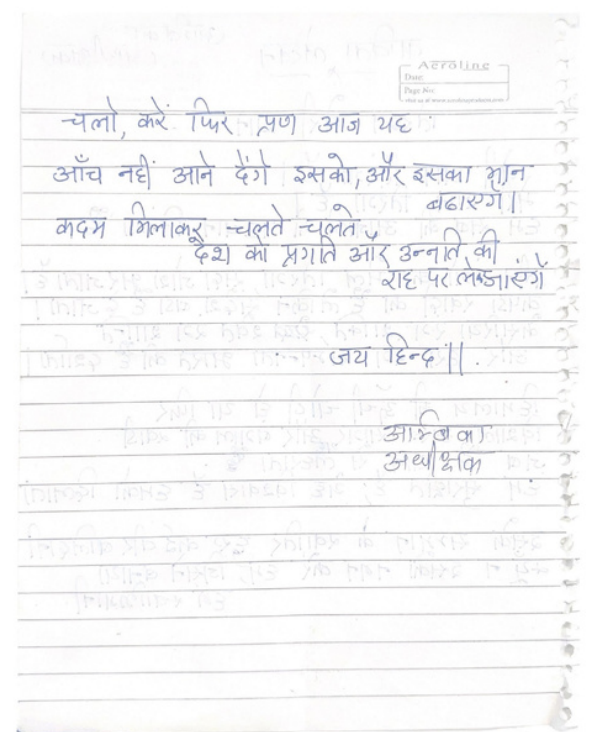 Acroline
Date:
Page No:
चलो, करें फिर प्रण आज यह
आँच नहीं आने देंगे इसको, और इसका मान
बढाएगें।
कदम मिलाकर चलते चलते
देश को प्रगति और उन्नति की
राह पर लेकर जाएंगें
जय हिन्द।।.
अम्बिका
अधीक्षक